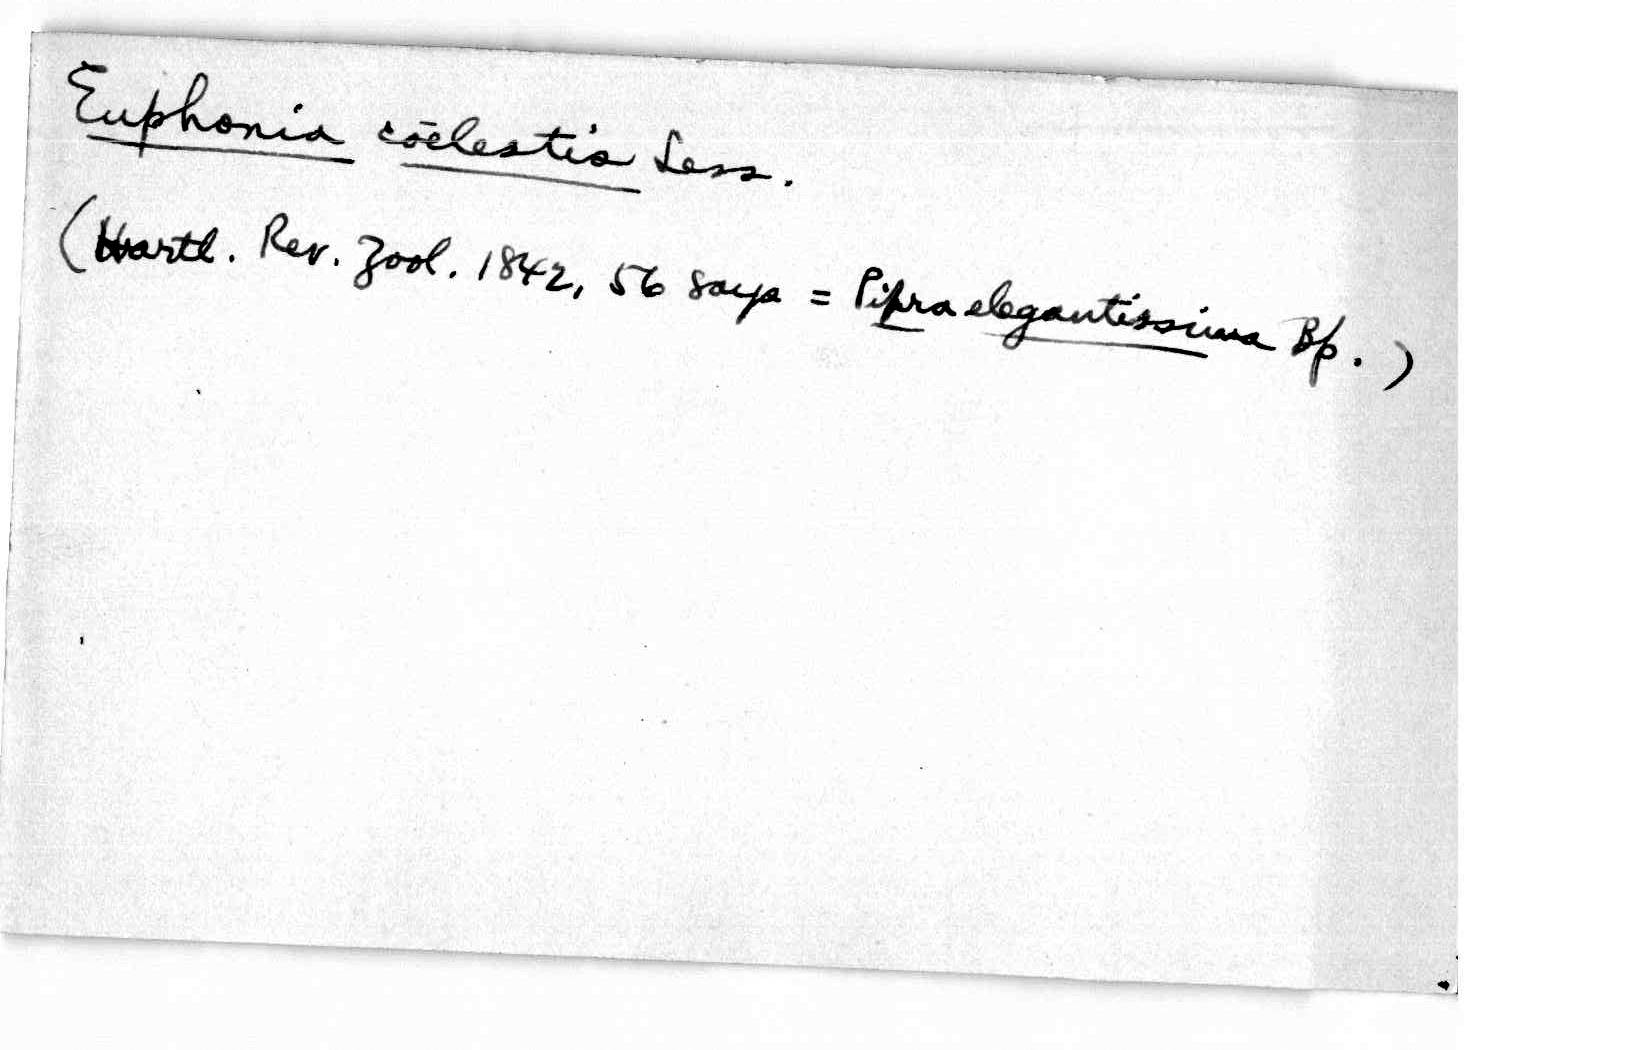 Euphonia cōelestis Less.
(Hartl. Rev. Zool. 1842, 56 says = Pipra elegantissima Bp.)